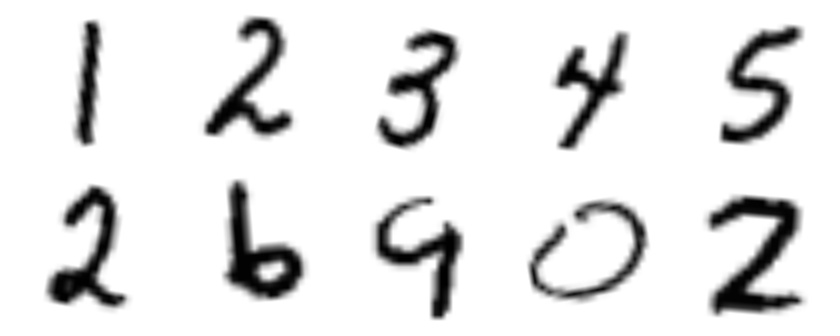 1 2 3 4 5
2 6 9 0 2